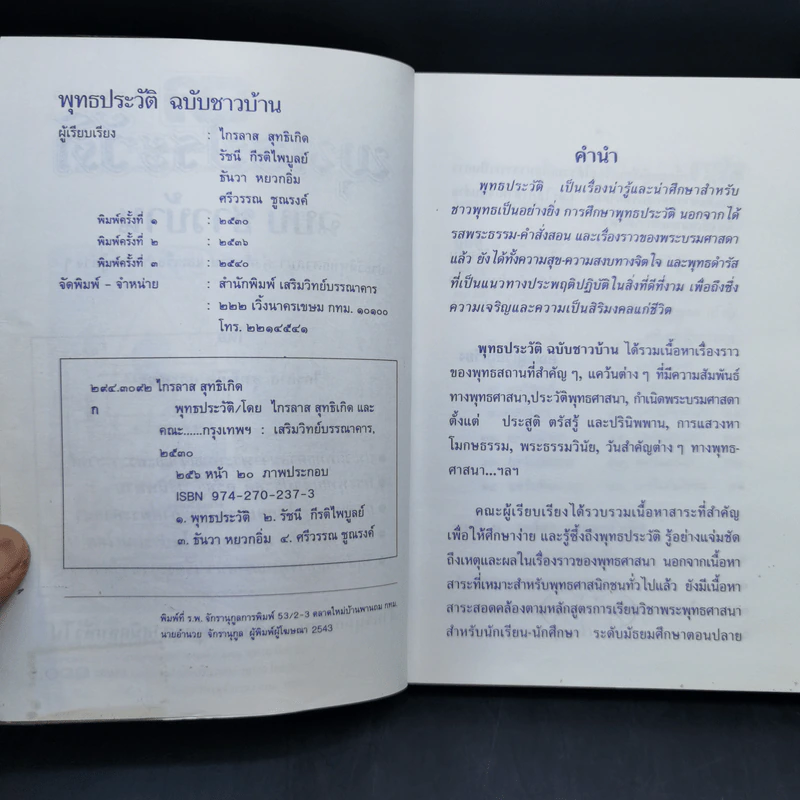 พุทธประวัติ ฉบับชาวบ้าน
ผู้เรียบเรียง : ไกรลาส สุทธิเกิด
รัชนี กีรติไพบูลย์
ธันวา หยวกอิ่ม
ศรีวรรณ ชูณรงค์
พิมพ์ครั้งที่ ๑ : ๒๕๓๐
พิมพ์ครั้งที่ ๒ : ๒๕๓๖
พิมพ์ครั้งที่ ๓ : ๒๕๔๐
จัดพิมพ์ – จำหน่าย : สำนักพิมพ์ เสริมวิทย์บรรณาคาร
: ๒๒๒ เวิ้งนาครเขษม กทม. ๑๐๑๐๐
โทร. ๒๒๑๔๕๔๑
๒๙๔.๓๐๙๒ ไกรลาส สุทธิเกิด
ก พุทธประวัติ/โดย ไกรลาส สุทธิเกิด และ
คณะ......กรุงเทพฯ : เสริมวิทย์บรรณาคาร,
๒๕๓๐
๒๕๖ หน้า ๒๐ ภาพประกอบ
ISBN 974-270-237-3
๑. พุทธประวัติ ๒. รัชนี กีรติไพบูลย์
๓. ธันวา หยวกอิ่ม ๔. ศรีวรรณ ชูณรงค์
พิมพ์ที่ ร.พ. จักรานุกูลการพิมพ์ 53/2-3 ตลาดใหม่บ้านพานถม กทม.
นายอำนวย จักรานุกูล ผู้พิมพ์ผู้โฆษณา 2543
คำนำ
พุทธประวัติ เป็นเรื่องน่ารู้และน่าศึกษาสำหรับ
ชาวพุทธเป็นอย่างยิ่ง การศึกษาพุทธประวัติ นอกจากได้
รสพระธรรม-คำสั่งสอน และเรื่องราวของพระบรมศาสดา
แล้ว ยังได้ทั้งความสุข-ความสงบทางจิตใจ และพุทธดำรัส
ที่เป็นแนวทางประพฤติปฏิบัติในสิ่งที่ดีที่งาม เพื่อถึงซึ่ง
ความเจริญและความเป็นสิริมงคลแก่ชีวิต
พุทธประวัติ ฉบับชาวบ้าน ได้รวมเนื้อหาเรื่องราว
ของพุทธสถานที่สำคัญ ๆ, แคว้นต่าง ๆ ที่มีความสัมพันธ์
ทางพุทธศาสนา,ประวัติพุทธศาสนา, กำเนิดพระบรมศาสดา
ตั้งแต่ ประสูติ ตรัสรู้ และปรินิพพาน, การแสวงหา
โมกษธรรม, พระธรรมวินัย, วันสำคัญต่าง ๆ ทางพุทธ-
ศาสนา...ฯลฯ
คณะผู้เรียบเรียงได้รวบรวมเนื้อหาสาระที่สำคัญ
เพื่อให้ศึกษาง่าย และรู้ซึ้งถึงพุทธประวัติ รู้อย่างแจ่มชัด
ถึงเหตุและผลในเรื่องราวของพุทธศาสนา นอกจากเนื้อหา
สาระที่เหมาะสำหรับพุทธศาสนิกชนทั่วไปแล้ว ยังมีเนื้อหา
สาระสอดคล้องตามหลักสูตรการเรียนวิชาพระพุทธศาสนา
สำหรับนักเรียน-นักศึกษา ระดับมัธยมศึกษาตอนปลาย